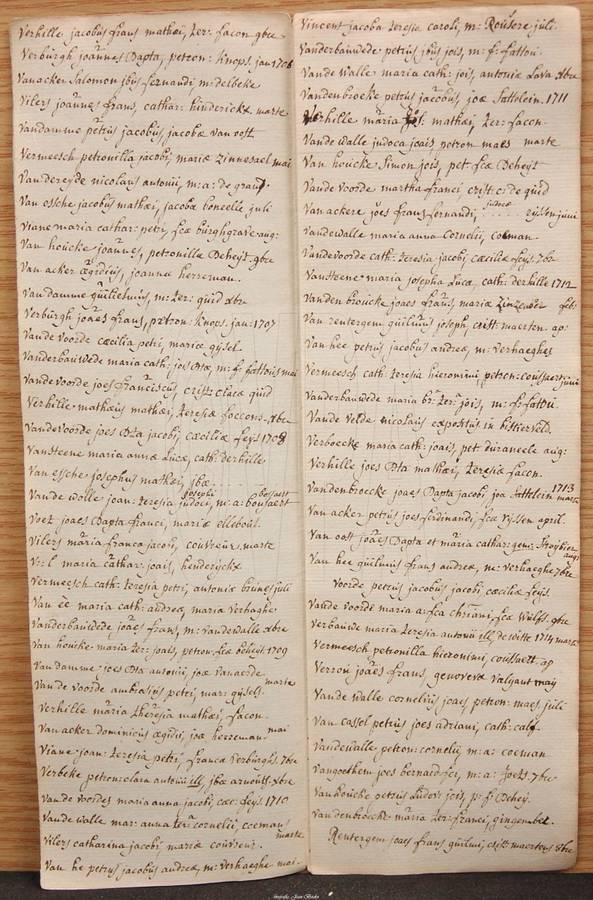 Verhille jacobus frans mathei, ter: facon gbre
Verburgh joannes Bapta, petron: knops. jan 1706
Vanacker Salomon jbus fernandi, m: delbeke
Vilers joannes frans, cathar: hinderickx marte
Vandamme petrus jacobus, jacoba van oost
Vermeesch petronilla jacobi, mariæ Zinnesael mai
Vandereyde nicolaus antonii, m: a: de grau
Van ossche jacobus mathæi, jacobæ boncelle juli
Viane maria cathar: petri, fcæ burghgrave aug:
Van houcke joannes, petronillæ Beheyt gbre
Van acker ægidius, joanna herreman.
Van damme guilielmus, m: ter: quid xbre
Verburgh joaes frans, petron: knops. jan: 1707
Van de voorde cæcilia petri, mariæ gysel.
Vanderbauwede maria cath: jois Btæ, m: f: fattous mai
Vandevoorde joes franciscus, crist: claeæ quid
Verhille mathæus mathæi, teresiæ foccons. xbre
Vandevoorde joes Bta jacobi, cæciliæ feys 1708
Vansteene maria anna Lucæ, cath: derhille
Van essche josephus mathæi, jbæ . . .
Van de walle: joan: teresia judoci, m: a: boussaert
josephi obossaert
Voet joaes Bapta franci, mariæ ellebout.
Vilers maria franca jacobi, couvreurs. marte
V: l maria cathar: joais, henderyckx
Vermeesch cath: teresia petri, antoniæ brunes juli
Van èe maria cath: andreæ, maria verhaghe
Vanderbauwede joaes frans, m: vandewalle xbre
Van houcke maria ter: joais, petron: fcæ beheyt 1709
Vandamme joes Bta antonii, joæ vanaerde
Van de voorde ambrosius petri, mar: gysels. marte
Verhille maria theresia mathæi, facon.
Van acker dominicus ægidii, joæ herreman mai
Viane joan: teresia petri, franca verburghs. 7bre
Verbeke petron: clara antonii ill, jbæ arnouts. xbre
Van de voordes maria anna jacobi, cæc: feys. 1710
Van de walle mar: anna ter: cornelii, coeman marte
Vilers catharina jacobi, mariæ couvreur.
Van he petrus jacobus andreæ, m: verhaeghe mai.
Vincent jacoba teresia caroli, m: Rousere juli.
Vanderbauwede petrus jbus jois, m: f: fattou.
Van de Walle maria cath: jois, antoniæ Lava xbre
Vandenbroecke petrus jacobus, joæ Sattelein. 1711
Verhille maria mathæi, ter: facon.
Van de walle judoca joais petron maes marte
Van houcke Simon jois, pet fcæ Beheyt
Van de Voorde martha franci, crist: cs de quid
Van ackere joes frans fernandi, . . . . ryssen juni
Vandewalle maria anna cornelii, coeman
Vandevoorde cath: teresia jacobi, cæciliæ feys. 7br
Vansteene maria josepha Lucæ, cath: derhille 1712
Van den broucke joaes frans, mariæ Zinzender feb
Van rentergem guilmus joseph, crist: maerten. ap:
Van hee petrus jacobus andreæ, m: verhaeghes
Vermeesch cath: teresia hieronimi, petron: coussaert juni
Vanderbauwede maria br: ter: jois, m: f: fattou.
Van de Velde nicolaus expositus in bistierveld.
Verboecke maria cath: joais, pet duraneele aug:
Verhille joes Bta mathæi, teresiæ facon.
Vandenbroecke joaes Bapta jacobi, joa Sattelein 1713 marte
Van acker petrus joes ferdinandi, fcæ ryssen april.
Van oost joaes Bapta et maria cathar: gem: Strybier aug:
Van hee guilmus frans andreæ, m: verhaeghe 7bre
Voorde petrus jacobus jacobi, cæcilia feys.
Van de voorde maria a: fca chriani, fcæ Wulfs. gbre
Verbauwe maria teresia antonii ill, de witte 1714 marte
Vermeesch petronilla hieronimi, coussaert. ap
Verrou joaes frans, genoveva valgaut may
Van de walle cornelius joaes, petron: maes. juli
Van cassel petrus joes adriani, cath: caly
Vandewalle petron: cornelii, m: a: coeman
Vangoethem joes bernard fer, m: a: joets. 7bre
Van houcke petrus Ludov: jois, p: f: Behey.
Vandenbroecke: maria ter: franci, gingembre.
Rentergem joaes frans guilmi, crist: maertens 8bre